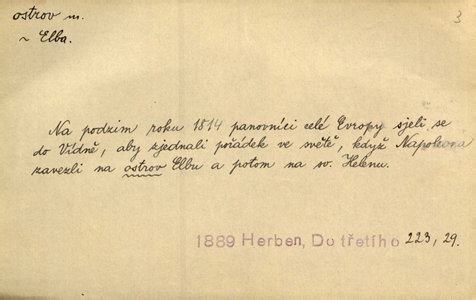 ostrov m.
3
~ Elba.
Na podzim roku 1814 panovníci celé Evropy sjeli se
do Vídně, aby zjednali pořádek ve světě, když Napoleona
zavezli na ostrov Elbu a potom na sv. Helenu.
1889 Herben, Do třetího 223, 29.